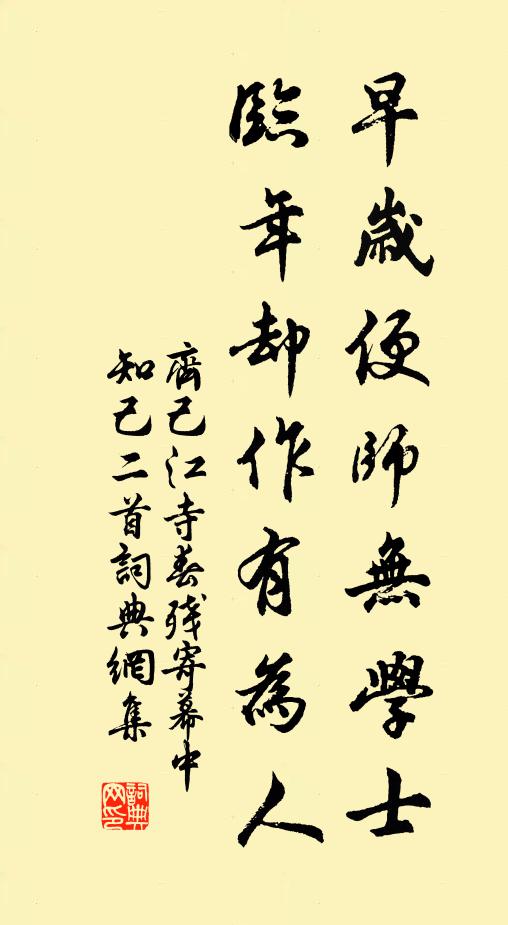 早歲便師無學士
臨年却作有為人
齊己江寺春殘寄幕中
知己二首詞典網集
詞典網印